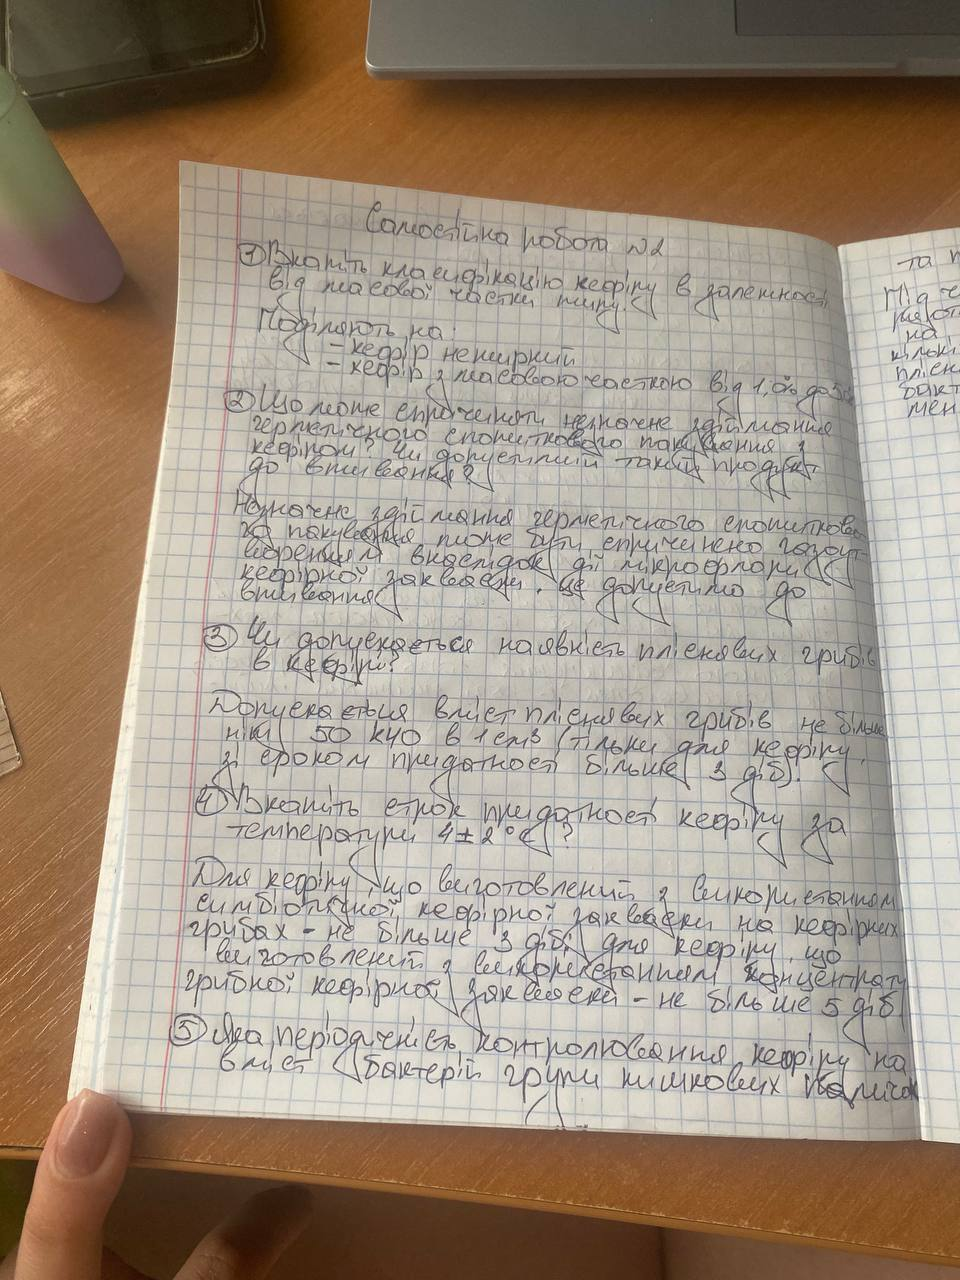 Самостійна робота №2
① Вкажіть класифікацію кефіру в залежності
від масової частки жиру.
Поділяють на:
- кефір нежирний
- кефір з масовою часткою від 1,0% до 5
② Що може спричиняти незначне здіймання
герметичного споживчого пакування з
кефіром? Чи допустимий такий продукт
до вживання?
Незначне здіймання герметичного спожитково
го пакування може бути спричинено газоут-
воренням внаслідок дії мікрофлори
кефірної закваски. Це допустимо до
вживання
③ Чи допускається наявність плісневих грибів
в кефірі?
Допускається вміст плісневих грибів не більше
ніж 50 КУО в 1 см³ (тільки для кефіру
зі сроком придатності більше 3 діб).
④ Вкажіть строк придатності кефіру за
температури 4±2°С?
Для кефіру, що виготовлений з використанням
симбіотичної кефірної закваски на кефірних
грибах - не більше 3 діб, для кефіру, що
виготовлений з використанням концентрату
грибної кефірної закваски - не більше 5 діб
⑤ Яка періодичність контролювання кефіру на
вміст бактерій групи кишкових паличок
та
Під ч
на
кількі
пліс
бакт
мен